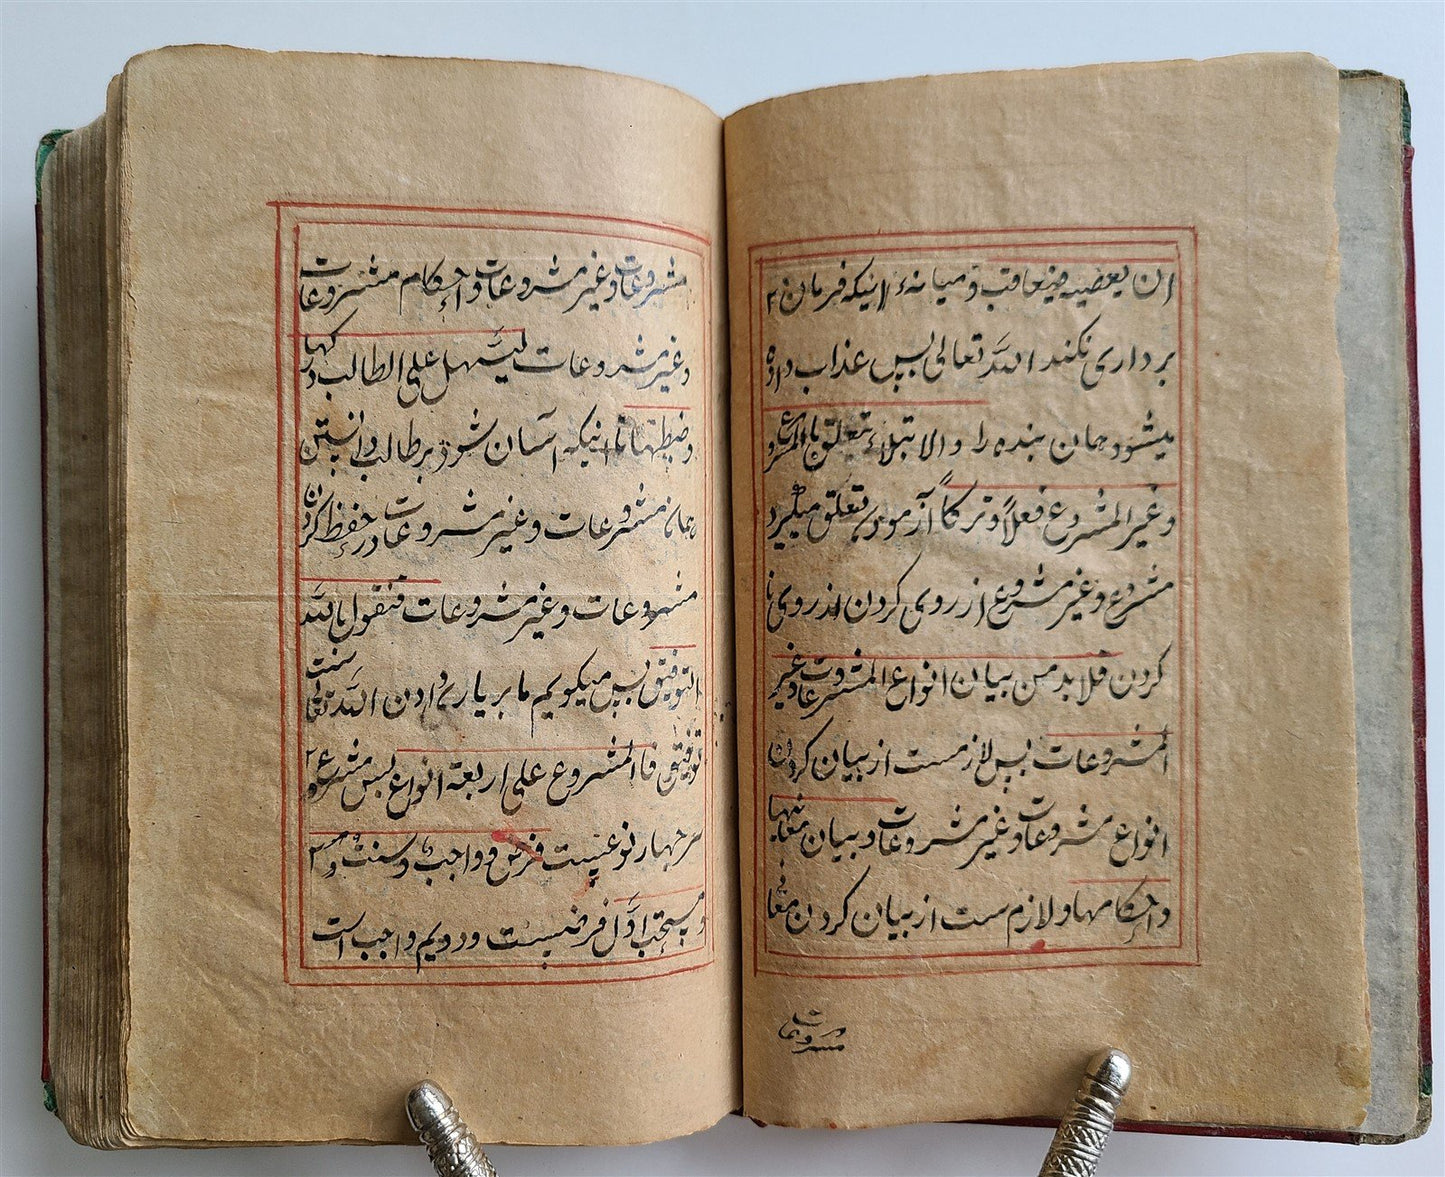 ان یعصیه فیعاقب و میانهٔ اینکه فرمان
برداری نکند الله تعالی پس عذاب داده
میشود همان بنده را والابتلاء یتعلق بالمشروع
وغیر المشروع فعلاً وترکاً آزمودن تعلق میگیرد
مشروع وغیر مشروع از روی کردن از روی نا
کردن فلا بد من بیان انواع المشروعات وغیر
المشروعات پس لازمست از بیان کردن
انواع مشروعات وغیر مشروعات و بیان معانیها
واحکامها ولازم ست از بیان کردن معانی
مشروعات
مشروعات وغیر مشروعات واحکام مشروعات
وغیر مشروعات لیسهل علی الطالب درکها
وضبطها تا اینکه آسان شود بر طالب دانستن
همان مشروعات وغیر مشروعات در حفظ کردن
مشروعات وغیر مشروعات فنقول بالله
التوفیق پس میکویم ما بریاری دادن الله تعالی سنت
توفیق فالمشروع علی اربعة انواع پس مشروع
بر چهار نوعیست فرض و واجب وسنت و
ومستحب اوّل فرضیست ودویم واجب است